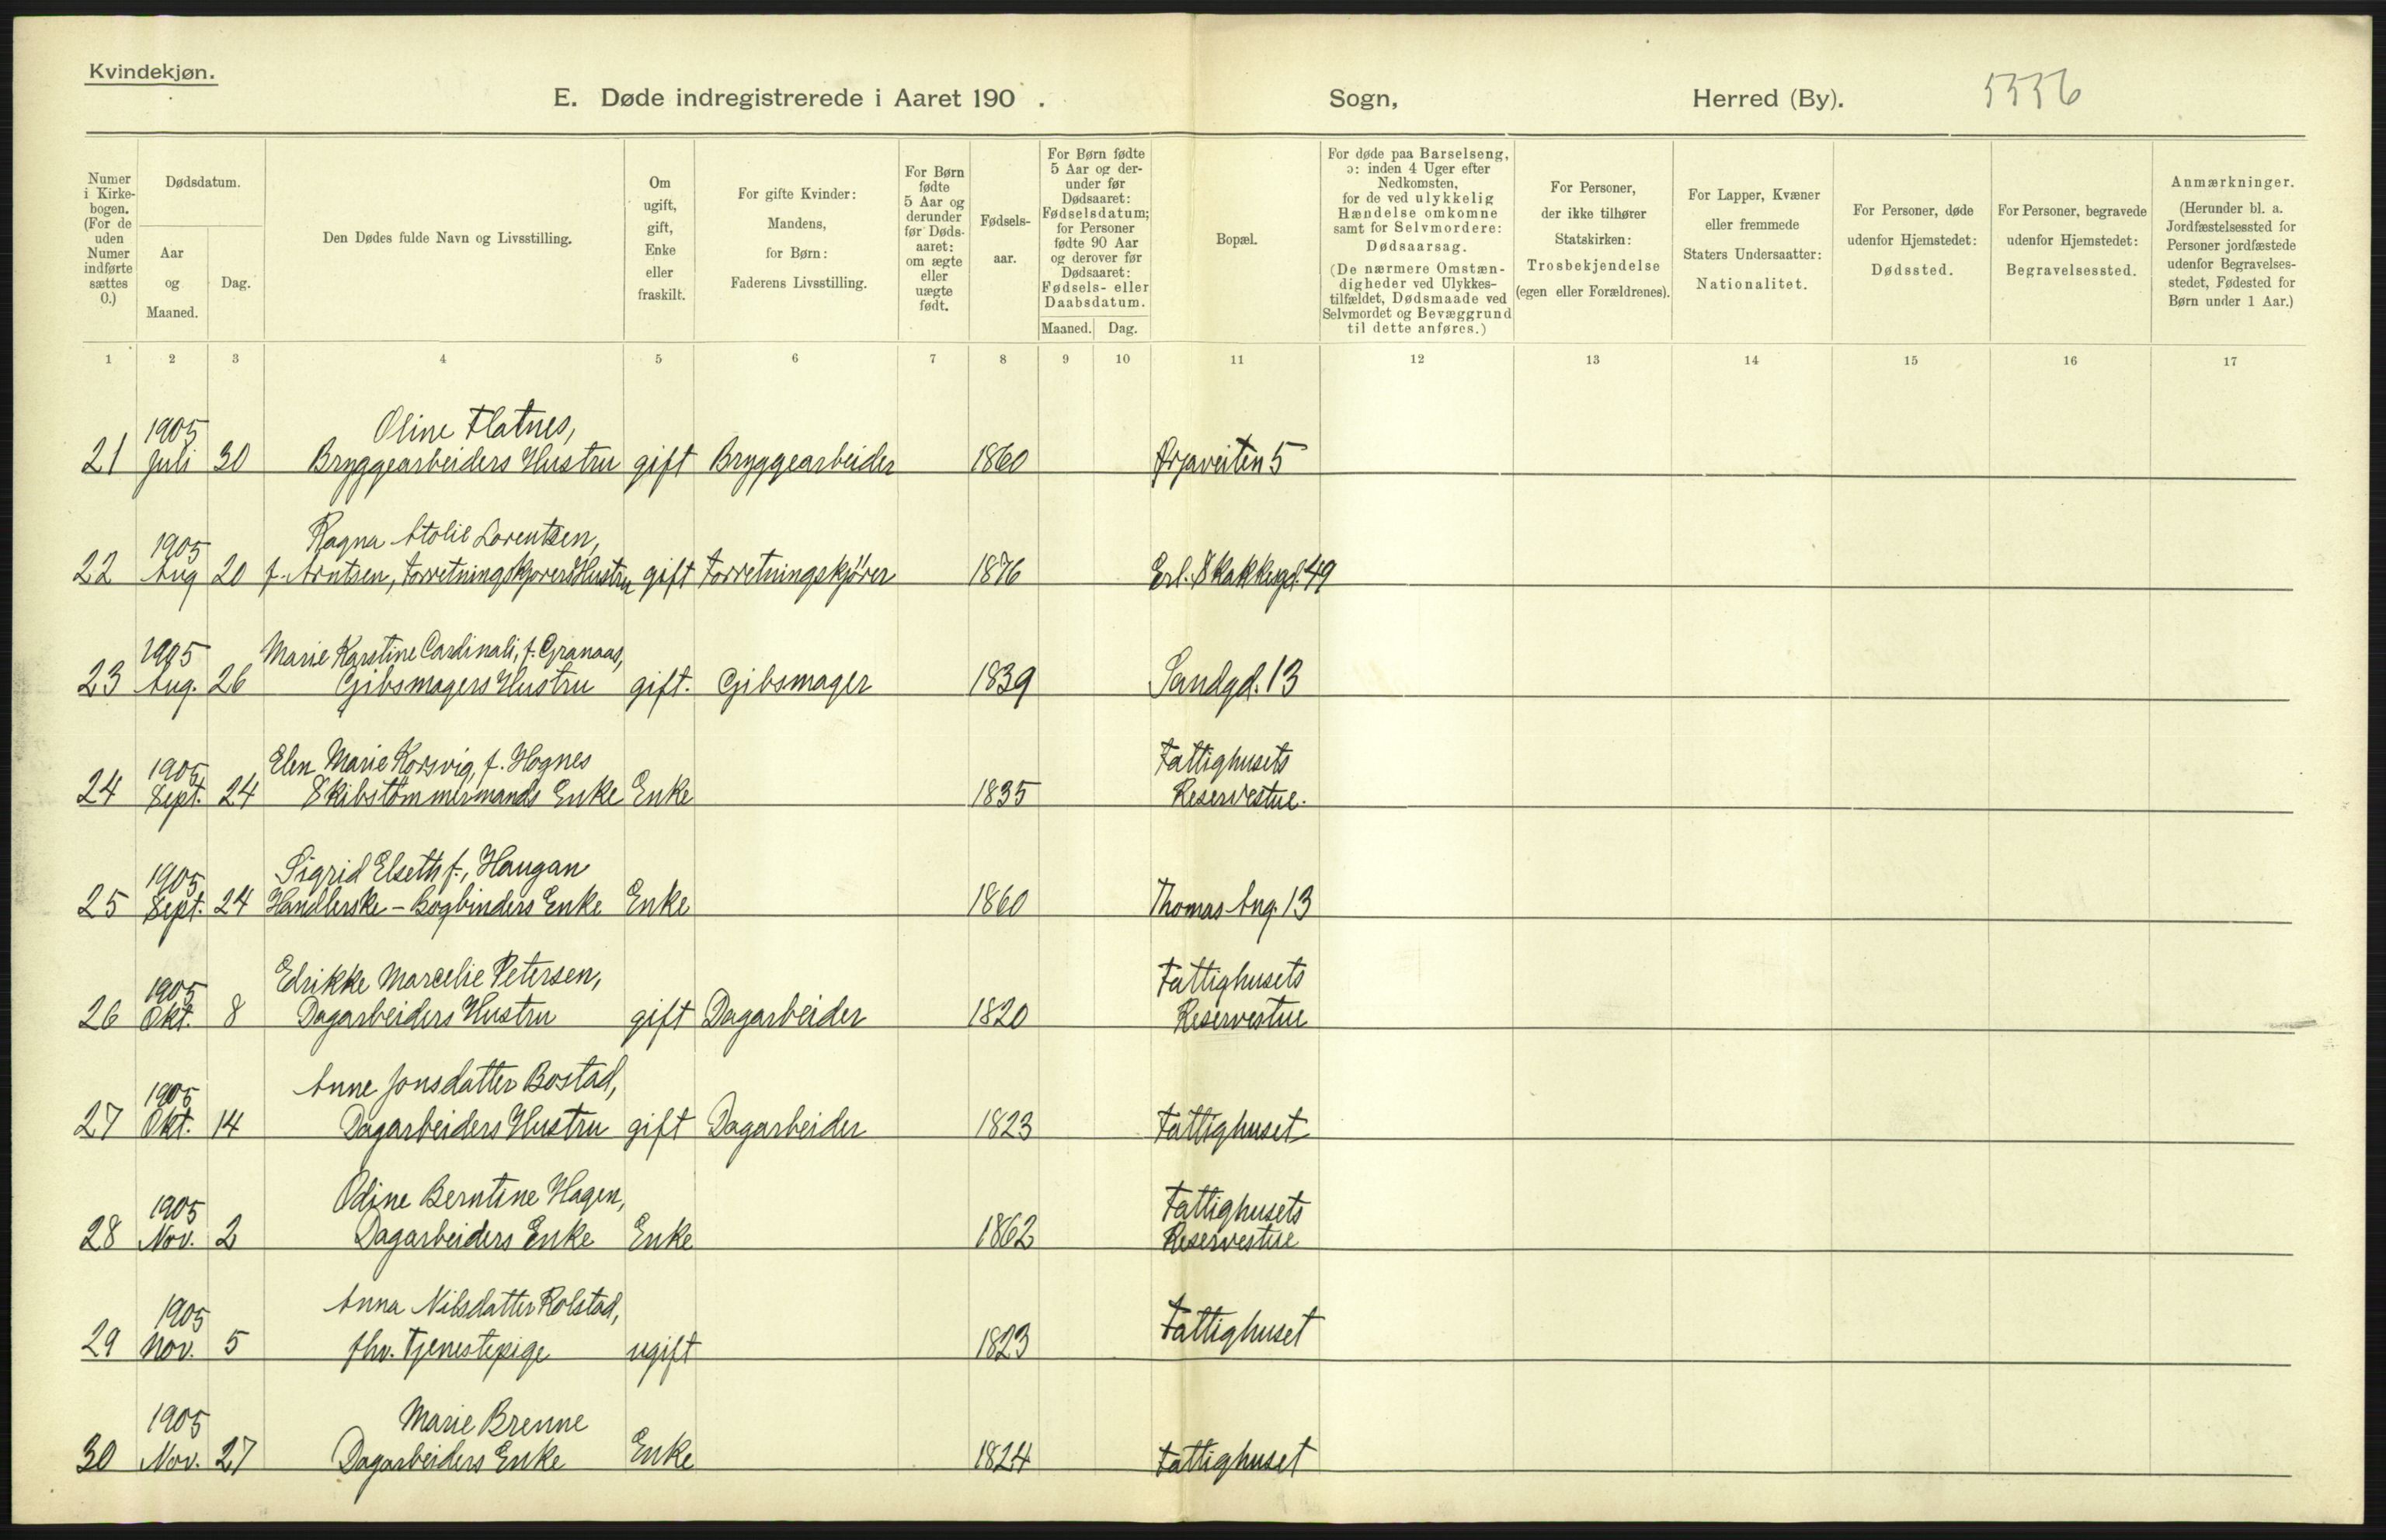 Kvindekjøn.
E. Døde indregistrerede i Aaret 190 . Sogn, Herred (By). 5556
Numer i Kirkebogen. (For de uden Numer indførte sættes 0.)
Dødsdatum.
Aar og Maaned.
Dag.
Den Dødes fulde Navn og Livsstilling.
Om ugift, gift, Enke eller fraskilt.
For gifte Kvinder: Mandens, for Børn: Faderens Livsstilling.
For Børn fødte 5 Aar og derunder før Dødsaaret: om ægte eller uægte født.
Fødselsaar.
For Børn fødte 5 Aar og derunder før Dødsaaret: Fødselsdatum; for Personer fødte 90 Aar og derover før Dødsaaret: Fødsels- eller Daabsdatum.
Maaned. Dag.
Bopæl.
For døde paa Barselseng, ɔ: inden 4 Uger efter Nedkomsten, for de ved ulykkelig Hændelse omkomne samt for Selvmordere: Dødsaarsag.
(De nærmere Omstændigheder ved Ulykkestilfældet, Dødsmaade ved Selvmordet og Bevæggrund til dette anføres.)
For Personer, der ikke tilhører Statskirken: Trosbekjendelse (egen eller Forældrenes).
For Lapper, Kvæner eller fremmede Staters Undersaatter: Nationalitet.
For Personer, døde udenfor Hjemstedet: Dødssted.
For Personer, begravede udenfor Hjemstedet: Begravelsessted.
Anmærkninger. (Herunder bl. a. Jordfæstelsessted for Personer jordfæstede udenfor Begravelsesstedet, Fødested for Børn under 1 Aar.)
1 2 3 4 5 6 7 8 9 10 11 12 13 14 15 16 17
1905 Oline Flatnes,
21 Juli 30 Bryggearbeiders Hustru gift Bryggearbeider 1860 Ørjaveiten 5
1905 Ragna Atolie Lorentsen,
22 Aug 20 f. Arntsen, Forretningskjørers Hustru gift Forretningskjører 1876 Erl. Skakkegd. 49
1905 Marie Karstine Cardinali, f. Granaas,
23 Aug. 26 Gibsmagers Hustru gift. Gibsmager 1839 Sandgd. 13
1905 Elen Marie Korsvig, f. Hognes Fattighusets
24 Sept. 24 Skibstømmermands Enke Enke 1835 Reservestue.
1905 Sigrid Elseth f. Haugan
25 Sept. 24 Handlerske - Bogbinders Enke Enke 1860 Thomas Ang. 13
1905 Edrikke Marcelie Petersen, Fattighusets
26 Okt. 8 Dagarbeiders Hustru gift Dagarbeider 1820 Reservestue
1905 Anne Jonsdatter Bostad,
27 Okt. 14 Dagarbeiders Hustru gift Dagarbeider 1823 Fattighuset
1905 Odine Berntine Hagen, Fattighusets
28 Nov. 2 Dagarbeiders Enke Enke 1862 Reservestue
1905 Anna Nilsdatter Rolstad,
29 Nov. 5 fhv. Tjenestepige ugift 1823 Fattighuset
1905 Marie Brenne
30 Nov. 27 Dagarbeiders Enke Enke 1824 Fattighuset